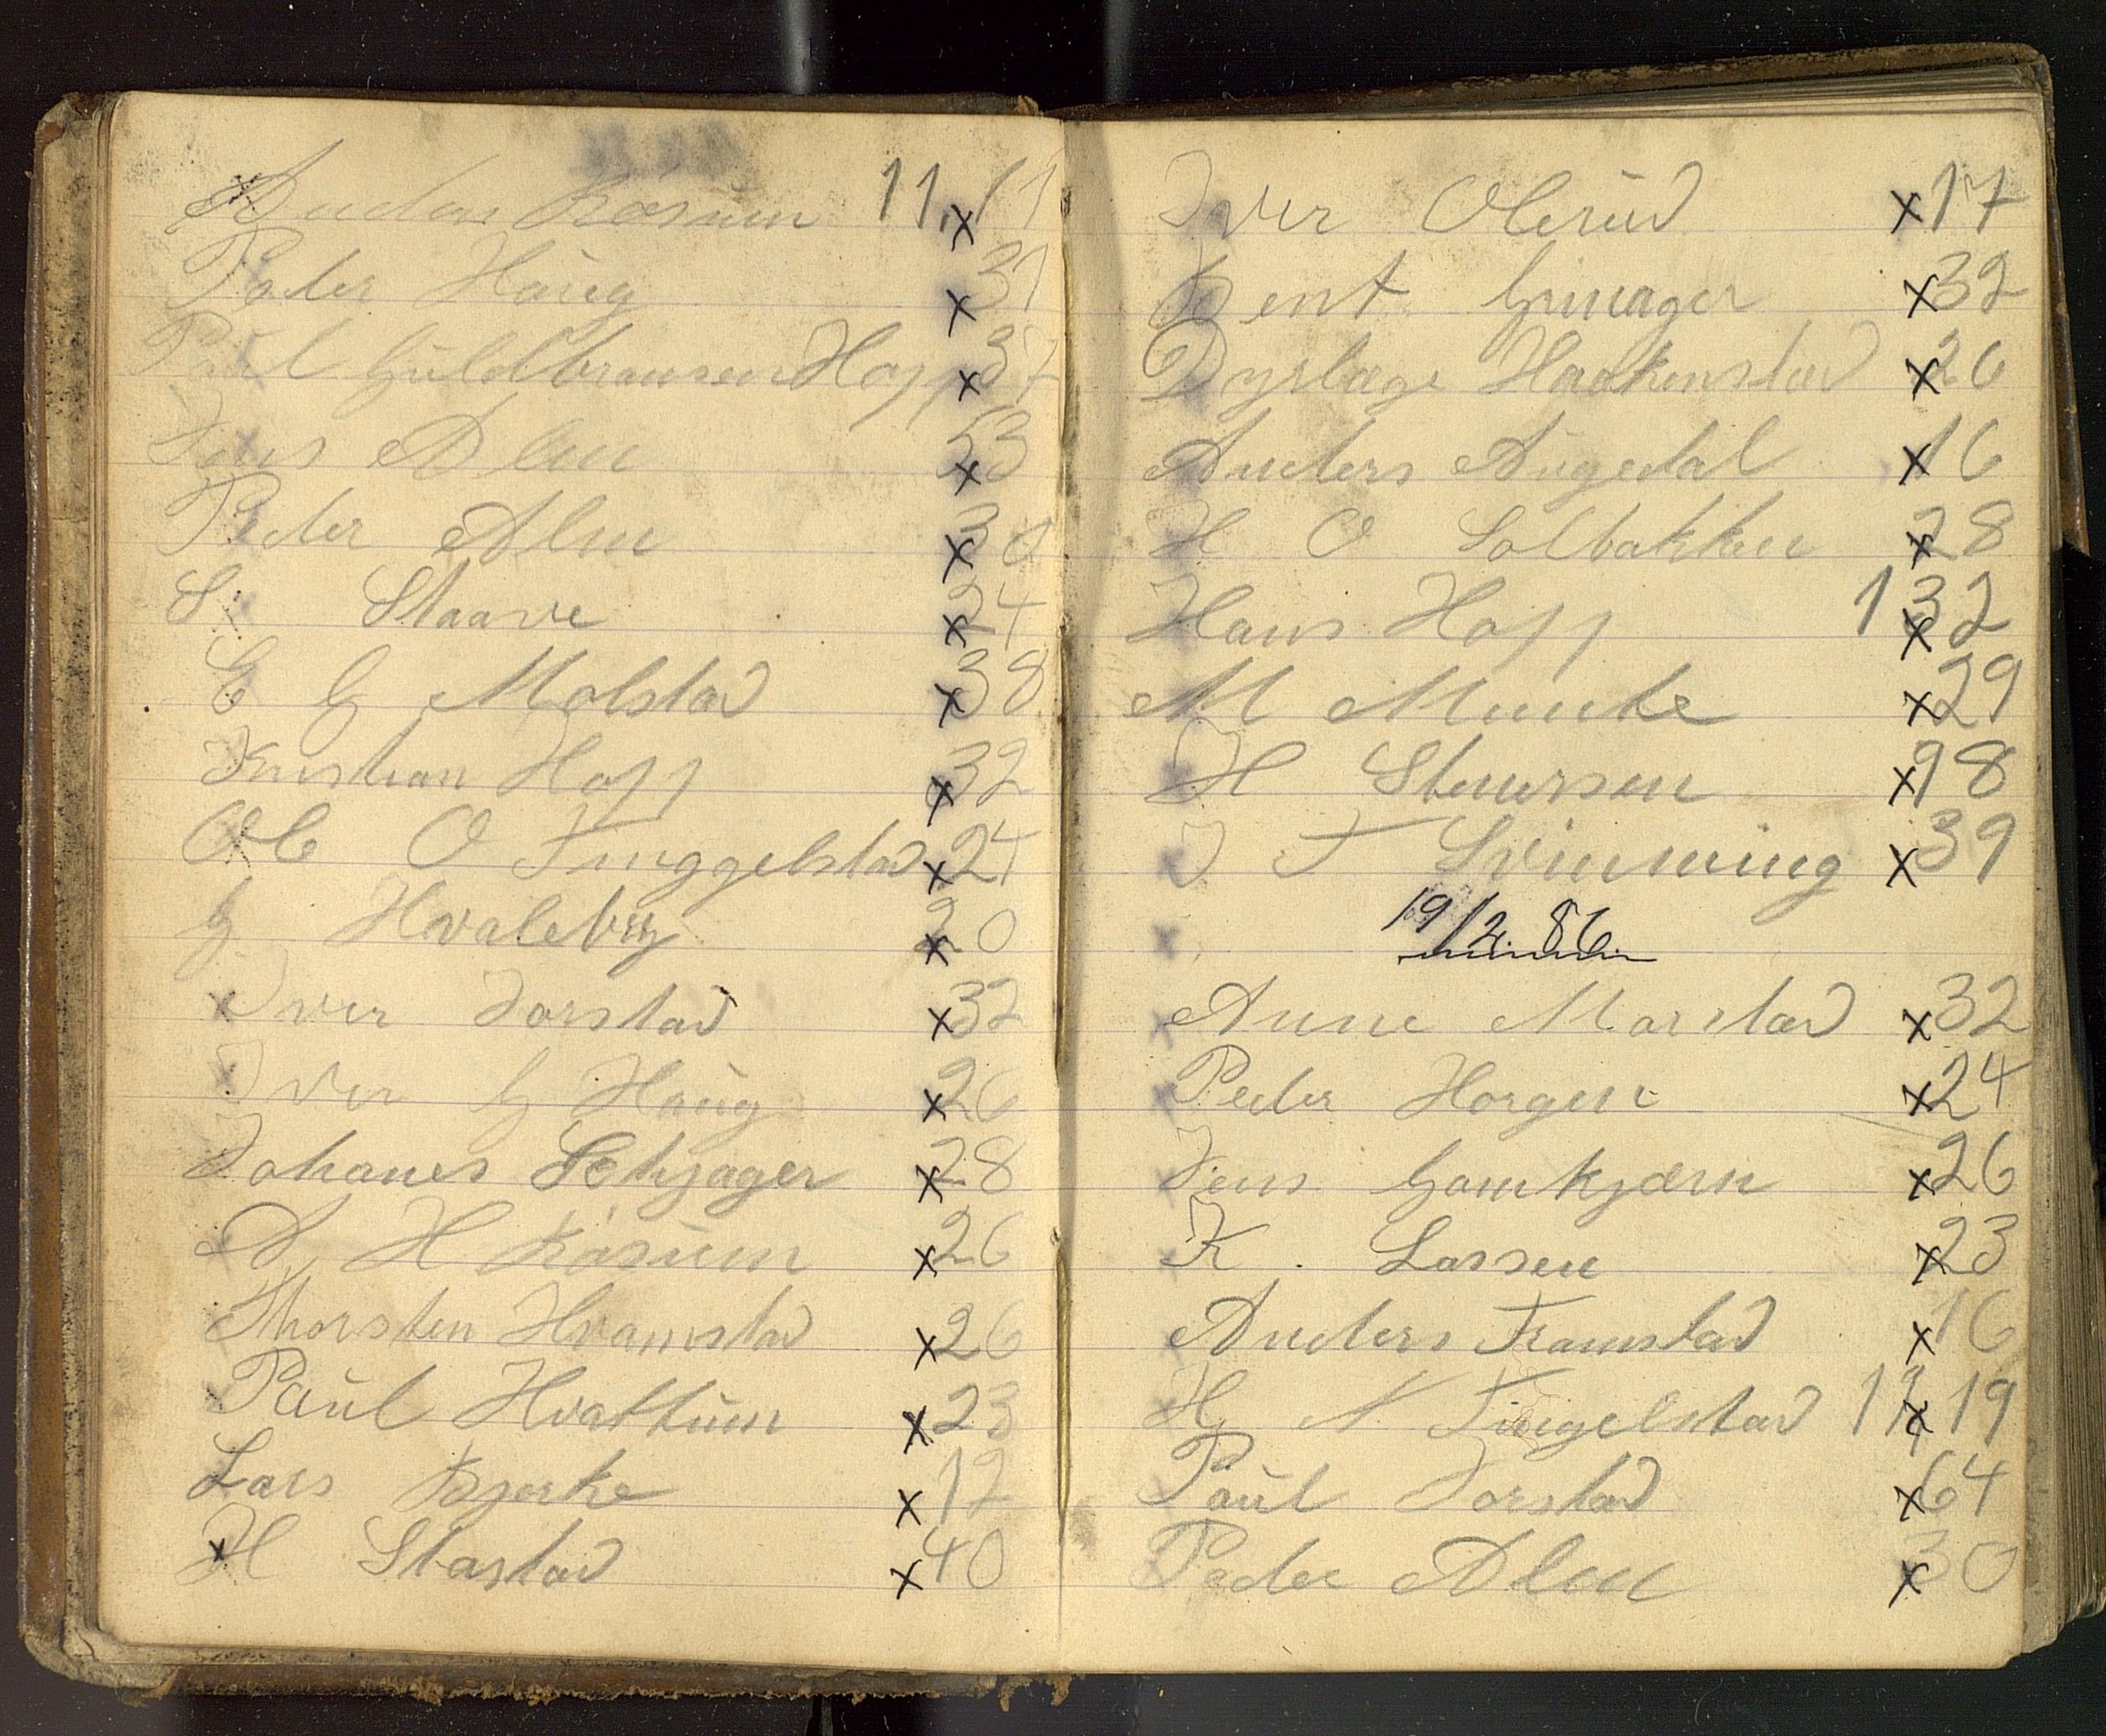 Anders Råsum 11 x 11
Peder Haug x 31
Paul Guldbransen Hopp x 37
Jens Alm x 53
Peder Alm x 30
S. Staave x 24
E G Molstad x 38
Kristian Hopp x 32
Ole O Tinggelstad x 24
G Hvaleby x 20
Iver Jorstad x 32
Iver G Haug x 26
Johanes Sehjager x 28
A H Råsum x 26
Thorsten Hvamstad x 26
Paul Hvattum x 23
Lars Bjerke x 12
H Stastad x 40
Iver Olerud x 17
Bent Grinager x 32
Dyrlæge Haakenstad x 26
Anders Augedal x 16
H O Solbakken x 28
Hans Hopp 1 x 32
M Munte x 29
H Stenersen x 98
J T Svinning x 39
19/2 86
Anne Morstad x 32
Peder Horgen x 24
Jens Gamkjærn x 26
K. Larsen x 23
Anders Framstad x 16
H N Tingelstad x 19
Paul Jorstad x 64
Peder Alm x 30